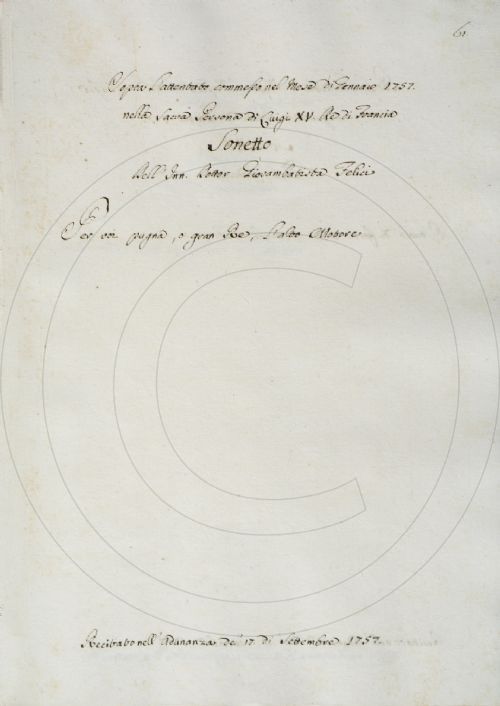 61
Sopra l'attentato commesso nel Mese di Gennaio 1757.
nella Sacra Persona di Luigi XV. Re di Francia
Sonetto
Dell' Inn. Dottor Giovambatista Felici
Per voi pugna, o gran Re, l'alto Motore
Recitato nell' Adunanza de' 17 di Settembre 1757.